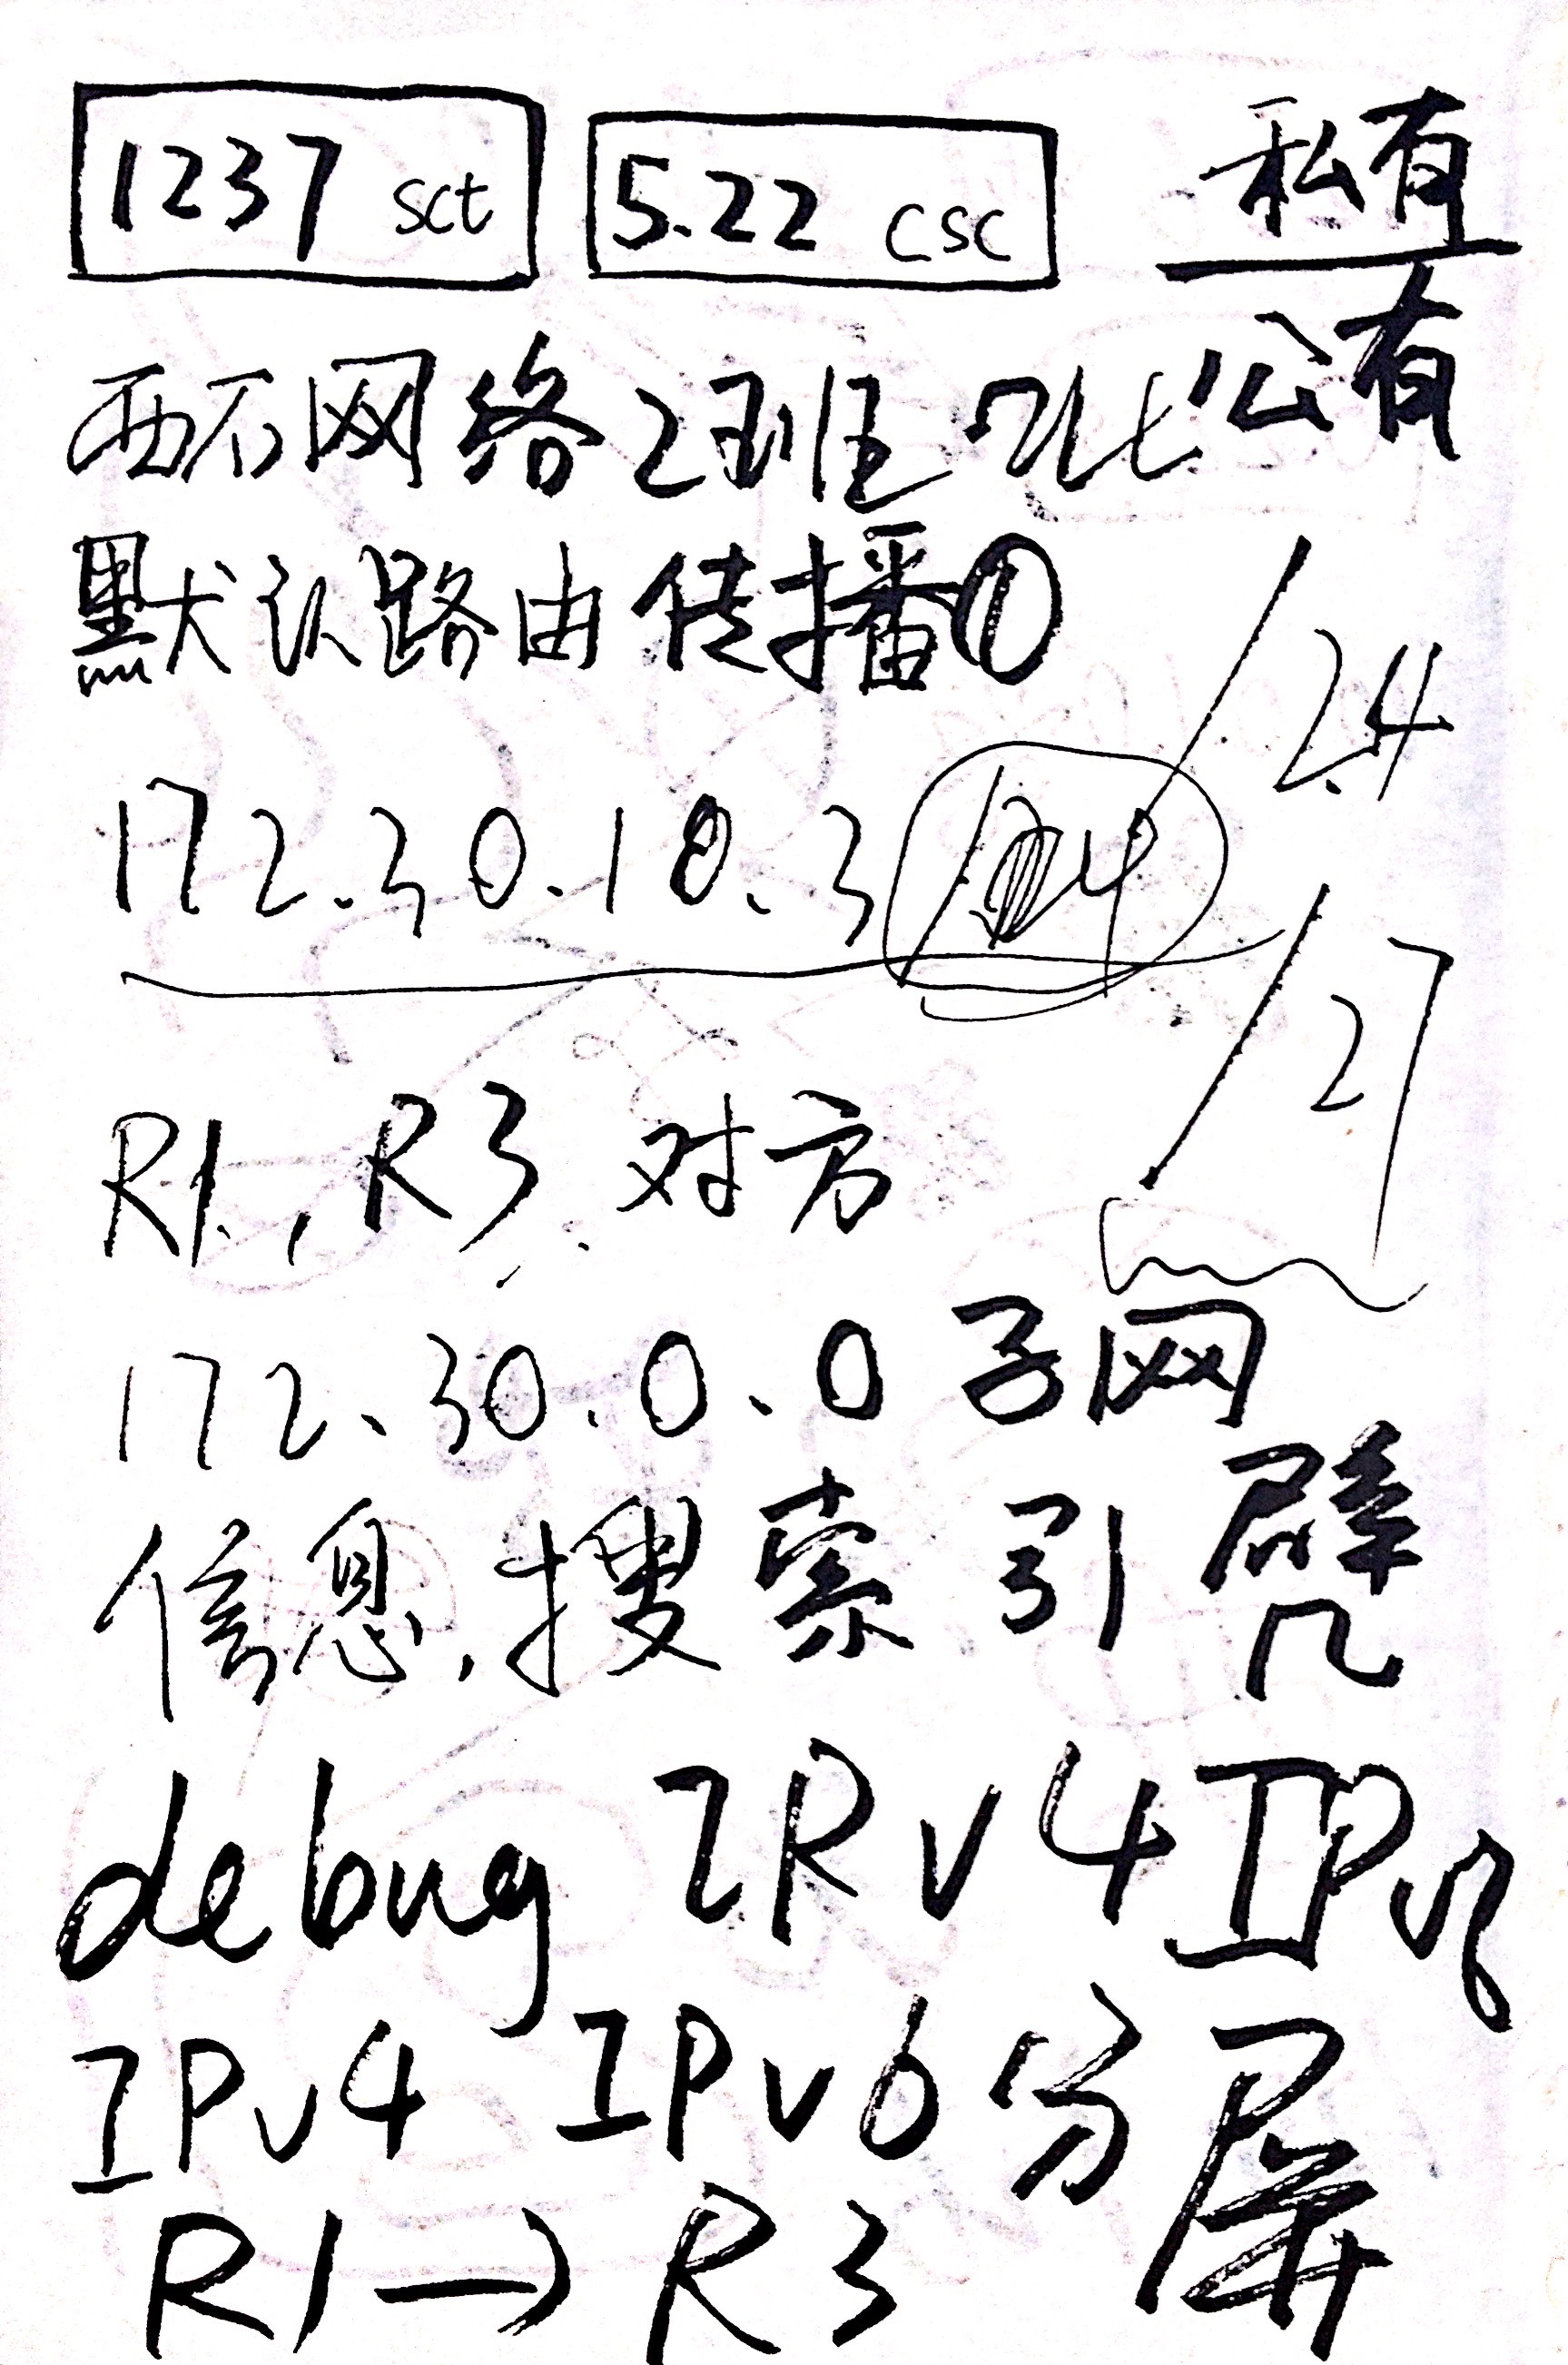 1237 sct
5.22 csc
私有
公有
西石网络2班
默认路由传播①
/24
172.30.10.3
/27
R1, R3 对方
172.30.0.0 子网
信息,搜索引擎
debug IPv4 IPv6
IPv4 IPv6 分屏
R1→R3